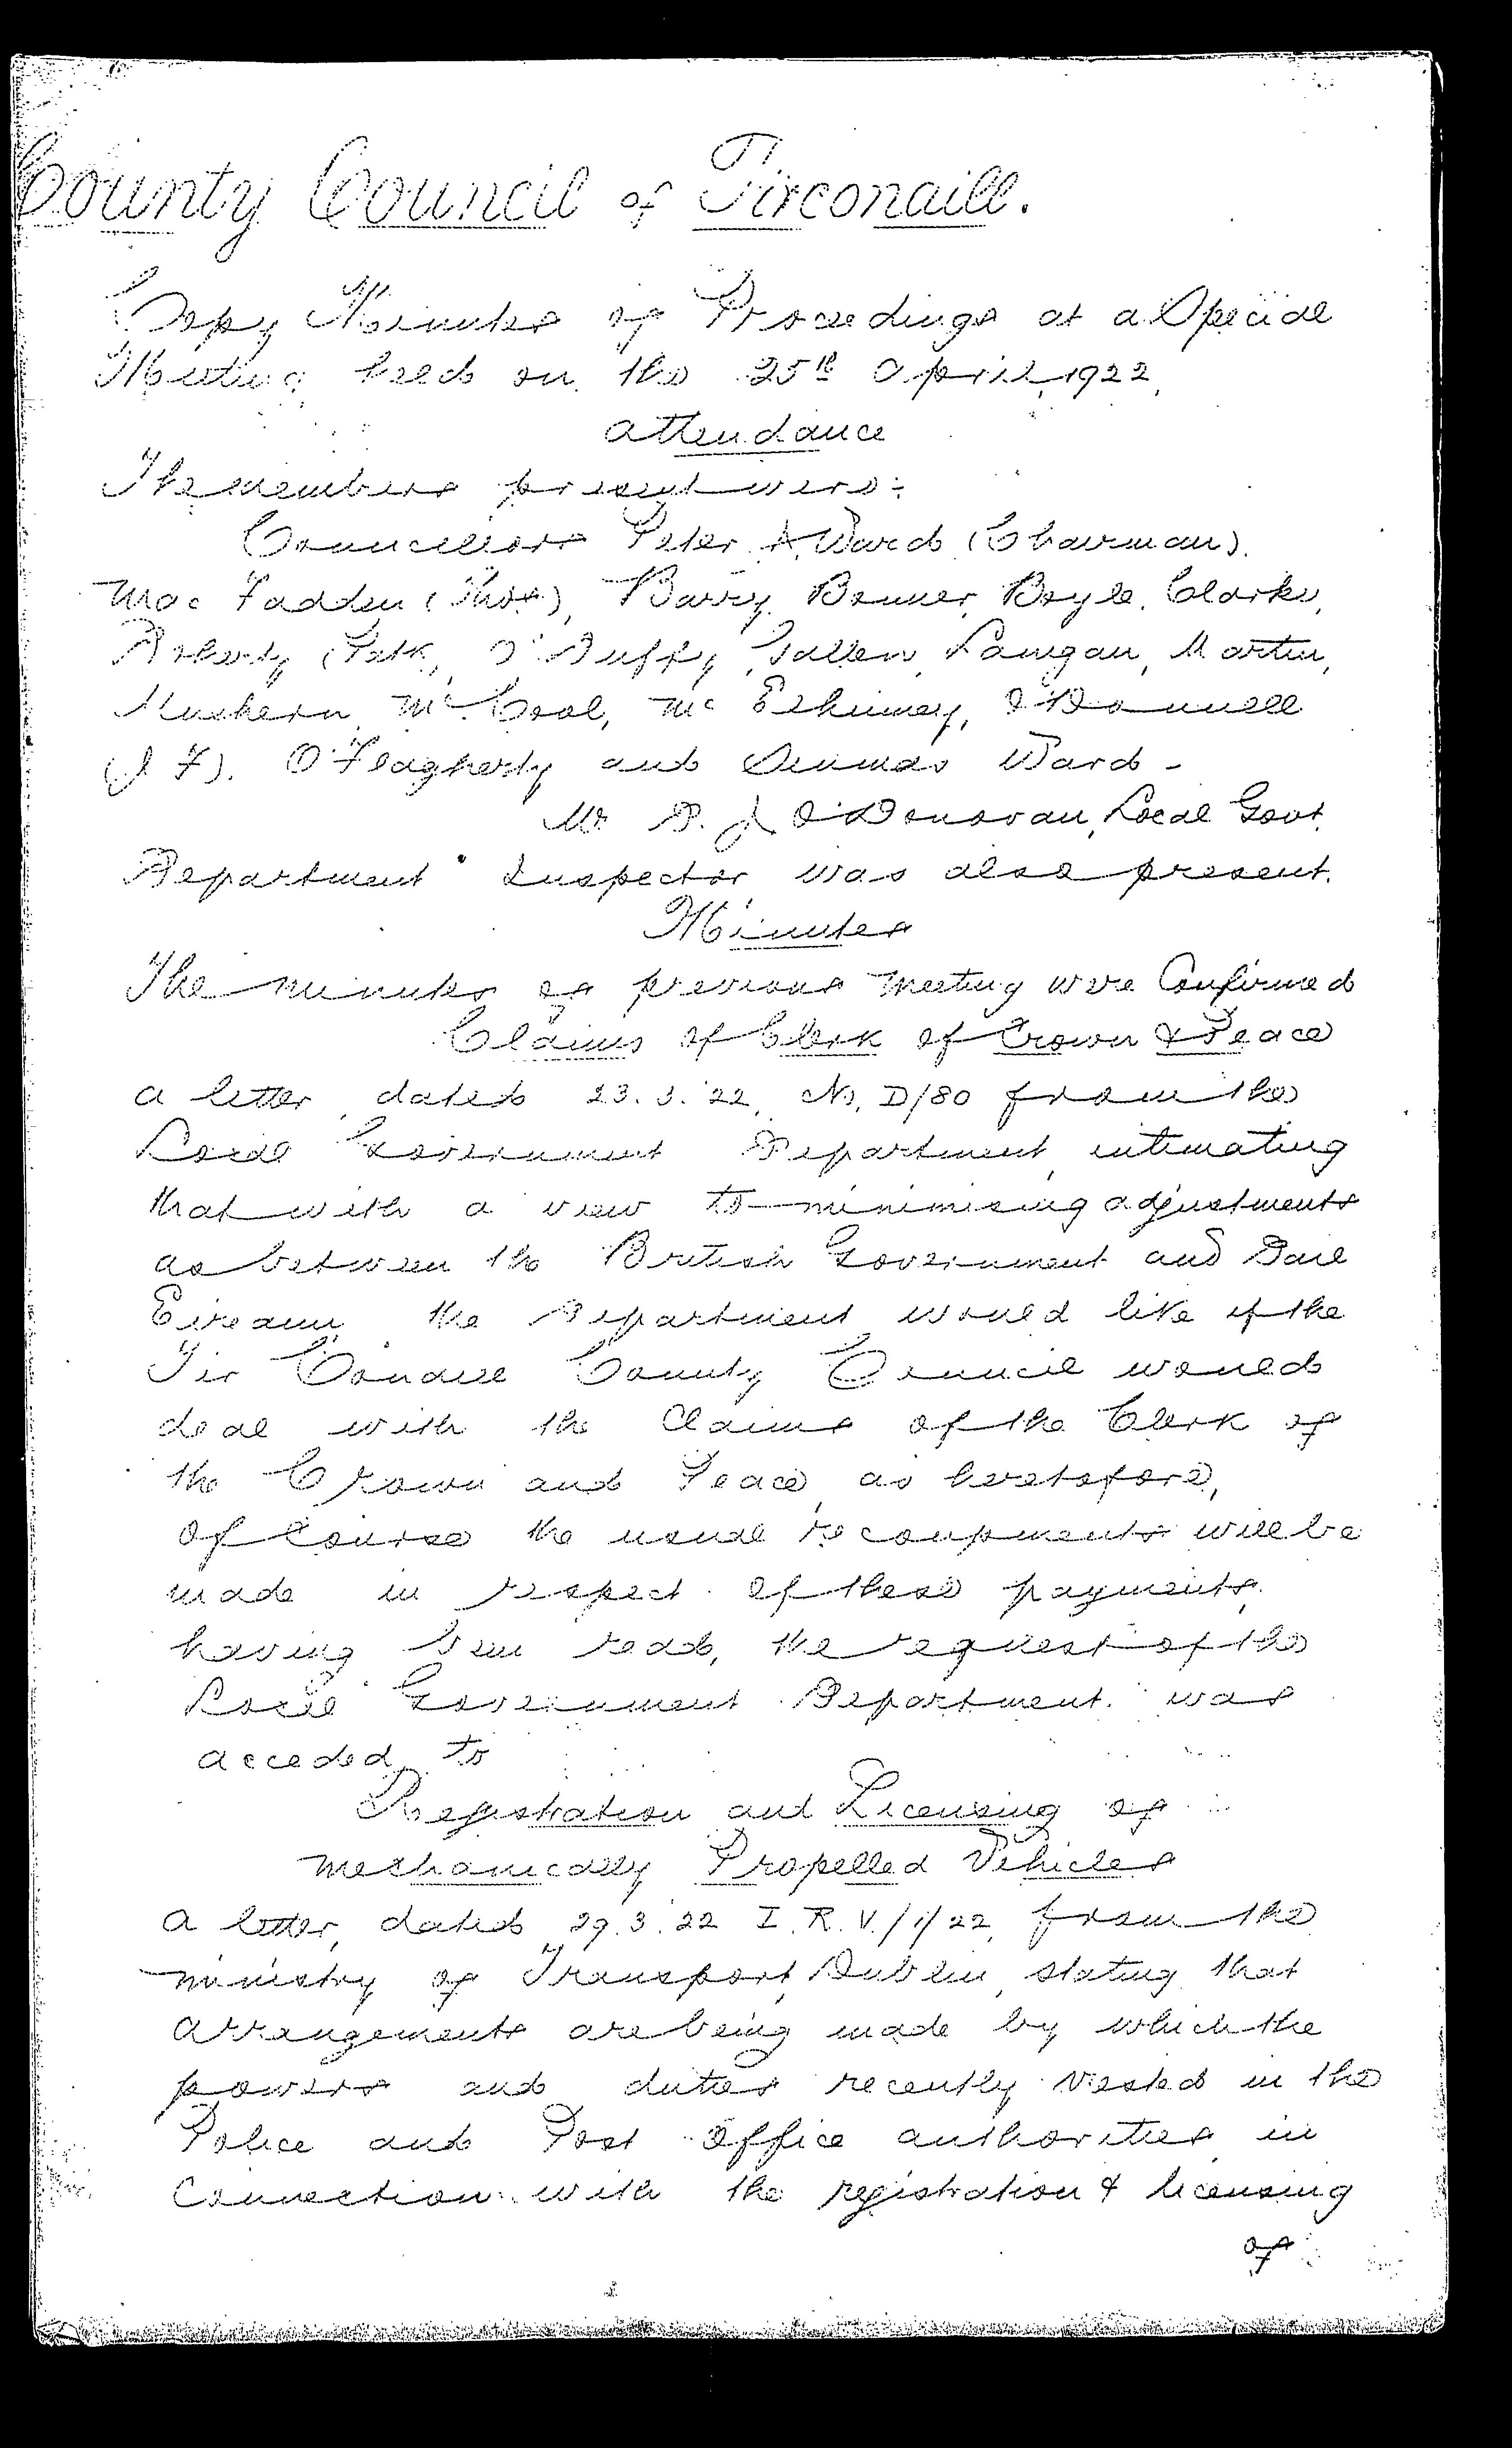 County Council of Tirconaill.
Copy Minutes of Proceedings at a Special
Meeting held on the 25th April, 1922.
Attendance
The members present were:
Councillors Peter A Ward (Chairman).
MacFadden (Thos), Barry, Bonner, Boyle, Clarke,
Doherty (Patk, O'Duffy, Gallen, Langan, Martin,
Meehan, McCool, McElhinney, O'Donnell
(J F). O'Flagherty and Seumas Ward -
Mr P. J. O'Donovan, Local Govt.
Department Inspector was also present.
Minutes
The minutes of previous meeting were Confirmed
Claims of Clerk of Crown & Peace
A letter dated 23.3.'22, No, D/80 from the
Local Government Department intimating
that with a view to minimising adjustments
as between the British Government and Dail
Eireann, the Department would like if the
Tir Conaill County Council would
deal with the Claims of the Clerk of
the Crown and Peace, as heretofore,
of Course the usual recoupments will be
made in respect of these payments,
having been read, the request of the
Local Government Department was
acceded to
Registration and Licensing of
Mechanically Propelled Vehicles
A letter, dated 29.3.'22 I.R.V./1/22, from the
Ministry of Transport, Dublin, stating that
arrangements are being made by which the
powers and duties recently vested in the
Police and Post Office authorities in
Connection with the registration & licensing
of